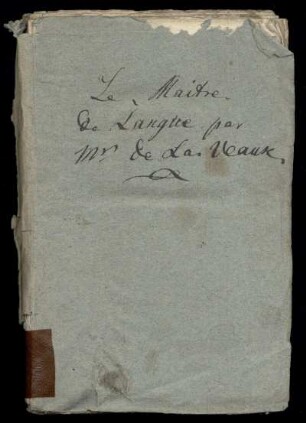 Le Maitre
de Langue par
Mr de La Veaux.